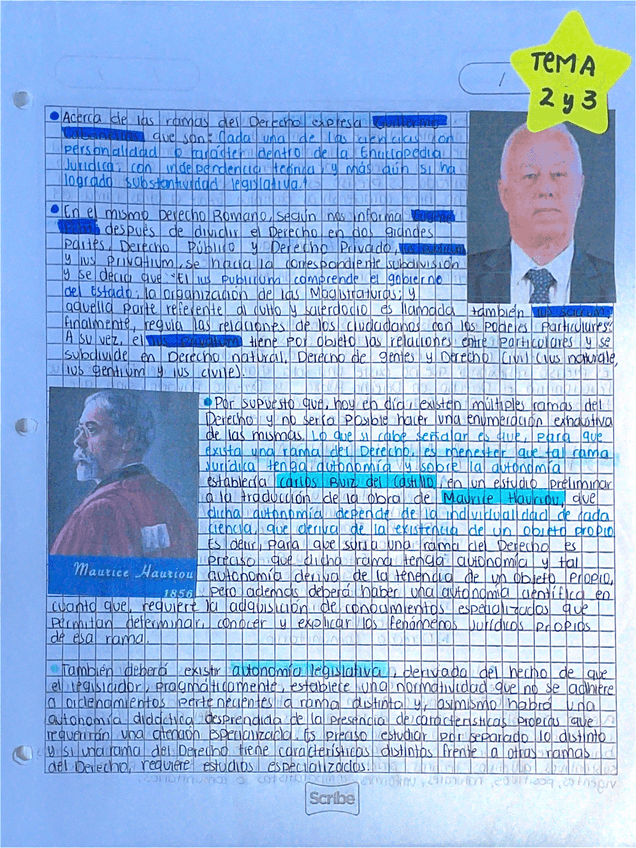 TEMA
2 y 3
Acerca de las ramas del Derecho expresa Guillermo
Cabanellas que son: Cada una de las ciencias con
personalidad o carácter dentro de la Enciclopedia
Jurídica; con independencia teórica y más aún si ha
logrado substantividad legislativa.
En el mismo Derecho Romano, según nos informa Eugene
Petit después de dividir el Derecho en dos grandes
partes, Derecho Público y Derecho Privado, ius publicum
y ius Privatium, se hacía la correspondiente subdivisión
y se decía que "El ius publicum comprende el gobierno
del Estado; la organización de las Magistraturas; y
aquella parte referente al culto y sacerdocio es llamada también ius sacrum;
finalmente, regula las relaciones de los ciudadanos con los Poderes Particulares".
A su vez, el ius privatium tiene por objeto las relaciones entre particulares y se
subdivide en Derecho natural, Derecho de gentes y Derecho Civil (ius naturale,
ius gentium y ius civile).
Por supuesto que, hoy en día, existen múltiples ramas del
Derecho y no sería posible hacer una enumeración exhaustiva
de las mismas. Lo que si cabe señalar es que, para que
exista una rama del Derecho, es menester que tal rama
Jurídica tenga autonomía y sobre la autonomía
establecía Carlos Ruiz del Castillo, en un estudio preliminar
a la traducción de la obra de Maurice Hauriou, que
dicha autonomía depende de la individualidad de cada
ciencia, que deriva de la existencia de un objeto propio
Es decir, para que surja una rama del Derecho es
preciso que dicha rama tenga autonomía y tal
autonomía deriva de la tenencia de un objeto propio,
pero además deberá haber una autonomía científica en
cuanto que, requiere la adquisición de conocimientos especializados que
permitan determinar, conocer y explicar los fenómenos jurídicos propios
de esa rama.
Maurice Hauriou
1856
También deberá existir autonomía legislativa, derivado del hecho de que
el legislador, pragmáticamente, establece una normatividad que no se adhiere
a ordenamientos pertenecientes a rama distinto y, asimismo habrá una
autonomía didáctica desprendida de la presencia de características propias que
requerirán una atención especializada. Es preciso estudiar por separado lo distinto
y si una rama del Derecho tiene características distintos frente a otras ramas
del Derecho, requiere estudios especializados.
Scribe